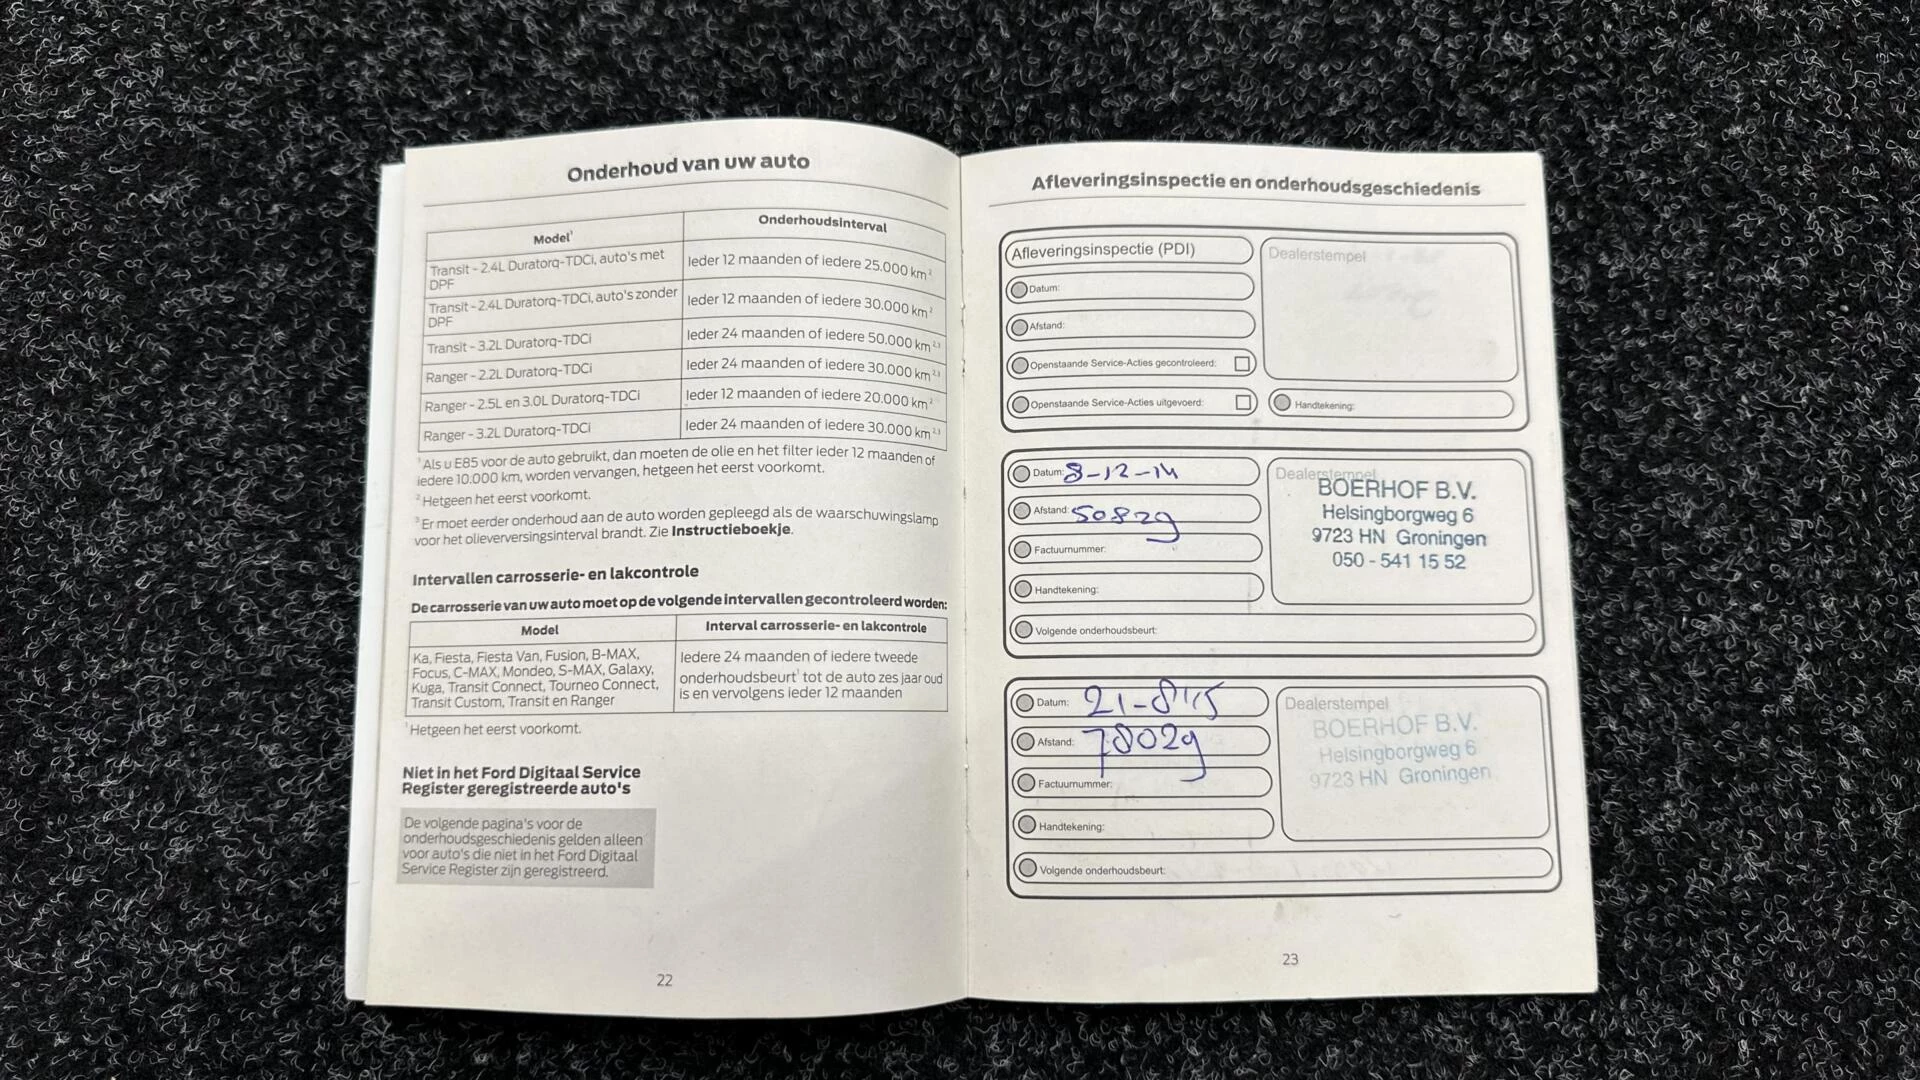 Onderhoud van uw auto
Model¹ Onderhoudsinterval
Transit - 2.4L Duratorq-TDCi, auto's met
DPF
Ieder 12 maanden of iedere 25.000 km²
Transit - 2.4L Duratorq-TDCi, auto's zonder
DPF
Ieder 12 maanden of iedere 30.000 km²
Transit - 3.2L Duratorq-TDCi Ieder 24 maanden of iedere 50.000 km²·³
Ranger - 2.2L Duratorq-TDCi Ieder 24 maanden of iedere 30.000 km²·³
Ranger - 2.5L en 3.0L Duratorq-TDCi Ieder 12 maanden of iedere 20.000 km²
Ranger - 3.2L Duratorq-TDCi Ieder 24 maanden of iedere 30.000 km²·³
¹ Als u E85 voor de auto gebruikt, dan moeten de olie en het filter ieder 12 maanden of
iedere 10.000 km, worden vervangen, hetgeen het eerst voorkomt.
² Hetgeen het eerst voorkomt.
³ Er moet eerder onderhoud aan de auto worden gepleegd als de waarschuwingslamp
voor het olieverversingsinterval brandt. Zie Instructieboekje.
Intervallen carrosserie- en lakcontrole
De carrosserie van uw auto moet op de volgende intervallen gecontroleerd worden:
Model Interval carrosserie- en lakcontrole
Ka, Fiesta, Fiesta Van, Fusion, B-MAX,
Focus, C-MAX, Mondeo, S-MAX, Galaxy,
Kuga, Transit Connect, Tourneo Connect,
Transit Custom, Transit en Ranger
Iedere 24 maanden of iedere tweede
onderhoudsbeurt¹ tot de auto zes jaar oud
is en vervolgens ieder 12 maanden
¹ Hetgeen het eerst voorkomt.
Niet in het Ford Digitaal Service
Register geregistreerde auto's
De volgende pagina's voor de
onderhoudsgeschiedenis gelden alleen
voor auto's die niet in het Ford Digitaal
Service Register zijn geregistreerd.
22
Afleveringsinspectie en onderhoudsgeschiedenis
Afleveringsinspectie (PDI)
Datum:
Afstand:
Openstaande Service-Acties gecontroleerd:
Openstaande Service-Acties uitgevoerd:
Dealerstempel
Handtekening:
Datum: 8-12-14
Afstand: 50829
Factuurnummer:
Handtekening:
Volgende onderhoudsbeurt:
Dealerstempel
BOERHOF B.V.
Helsingborgweg 6
9723 HN Groningen
050 - 541 15 52
Datum: 21-8-15
Afstand: 78029
Factuurnummer:
Handtekening:
Volgende onderhoudsbeurt:
Dealerstempel
BOERHOF B.V.
Helsingborgweg 6
9723 HN Groningen
23